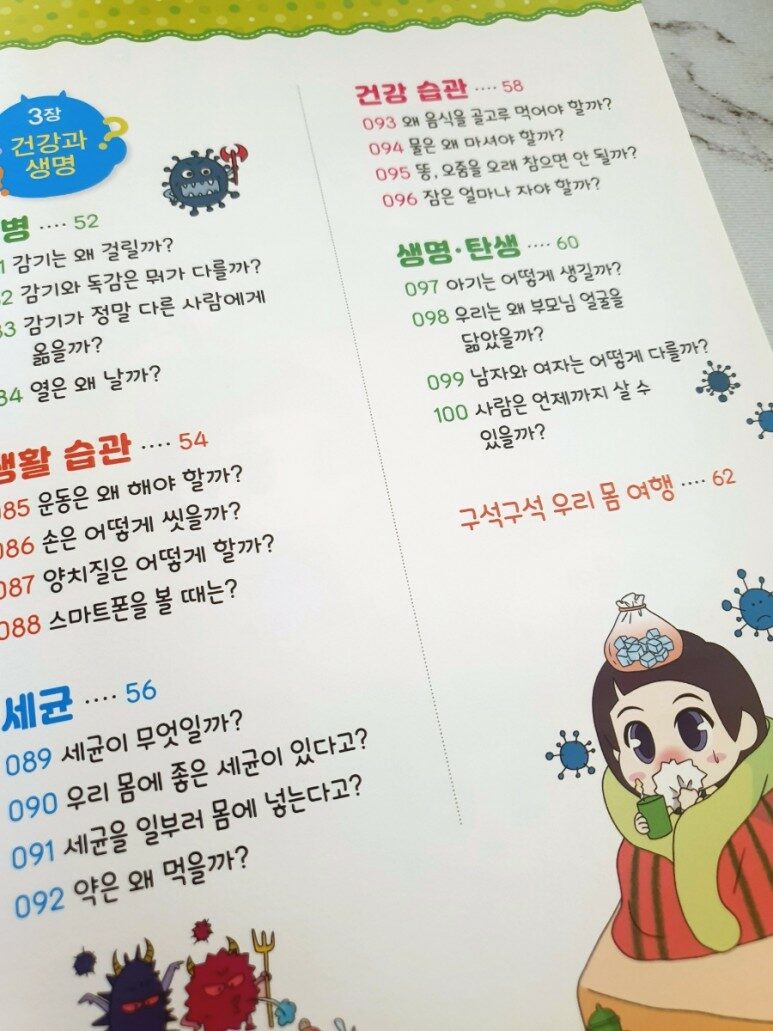 3장
건강과
생명
병 ···· 52
1 감기는 왜 걸릴까?
2 감기와 독감은 뭐가 다를까?
83 감기가 정말 다른 사람에게
옮을까?
84 열은 왜 날까?
생활 습관 ···· 54
085 운동은 왜 해야 할까?
086 손은 어떻게 씻을까?
087 양치질은 어떻게 할까?
088 스마트폰을 볼 때는?
세균 ···· 56
089 세균이 무엇일까?
090 우리 몸에 좋은 세균이 있다고?
091 세균을 일부러 몸에 넣는다고?
092 약은 왜 먹을까?
건강 습관 ···· 58
093 왜 음식을 골고루 먹어야 할까?
094 물은 왜 마셔야 할까?
095 똥, 오줌을 오래 참으면 안 될까?
096 잠은 얼마나 자야 할까?
생명·탄생 ···· 60
097 아기는 어떻게 생길까?
098 우리는 왜 부모님 얼굴을
닮았을까?
099 남자와 여자는 어떻게 다를까?
100 사람은 언제까지 살 수
있을까?
구석구석 우리 몸 여행 ···· 62